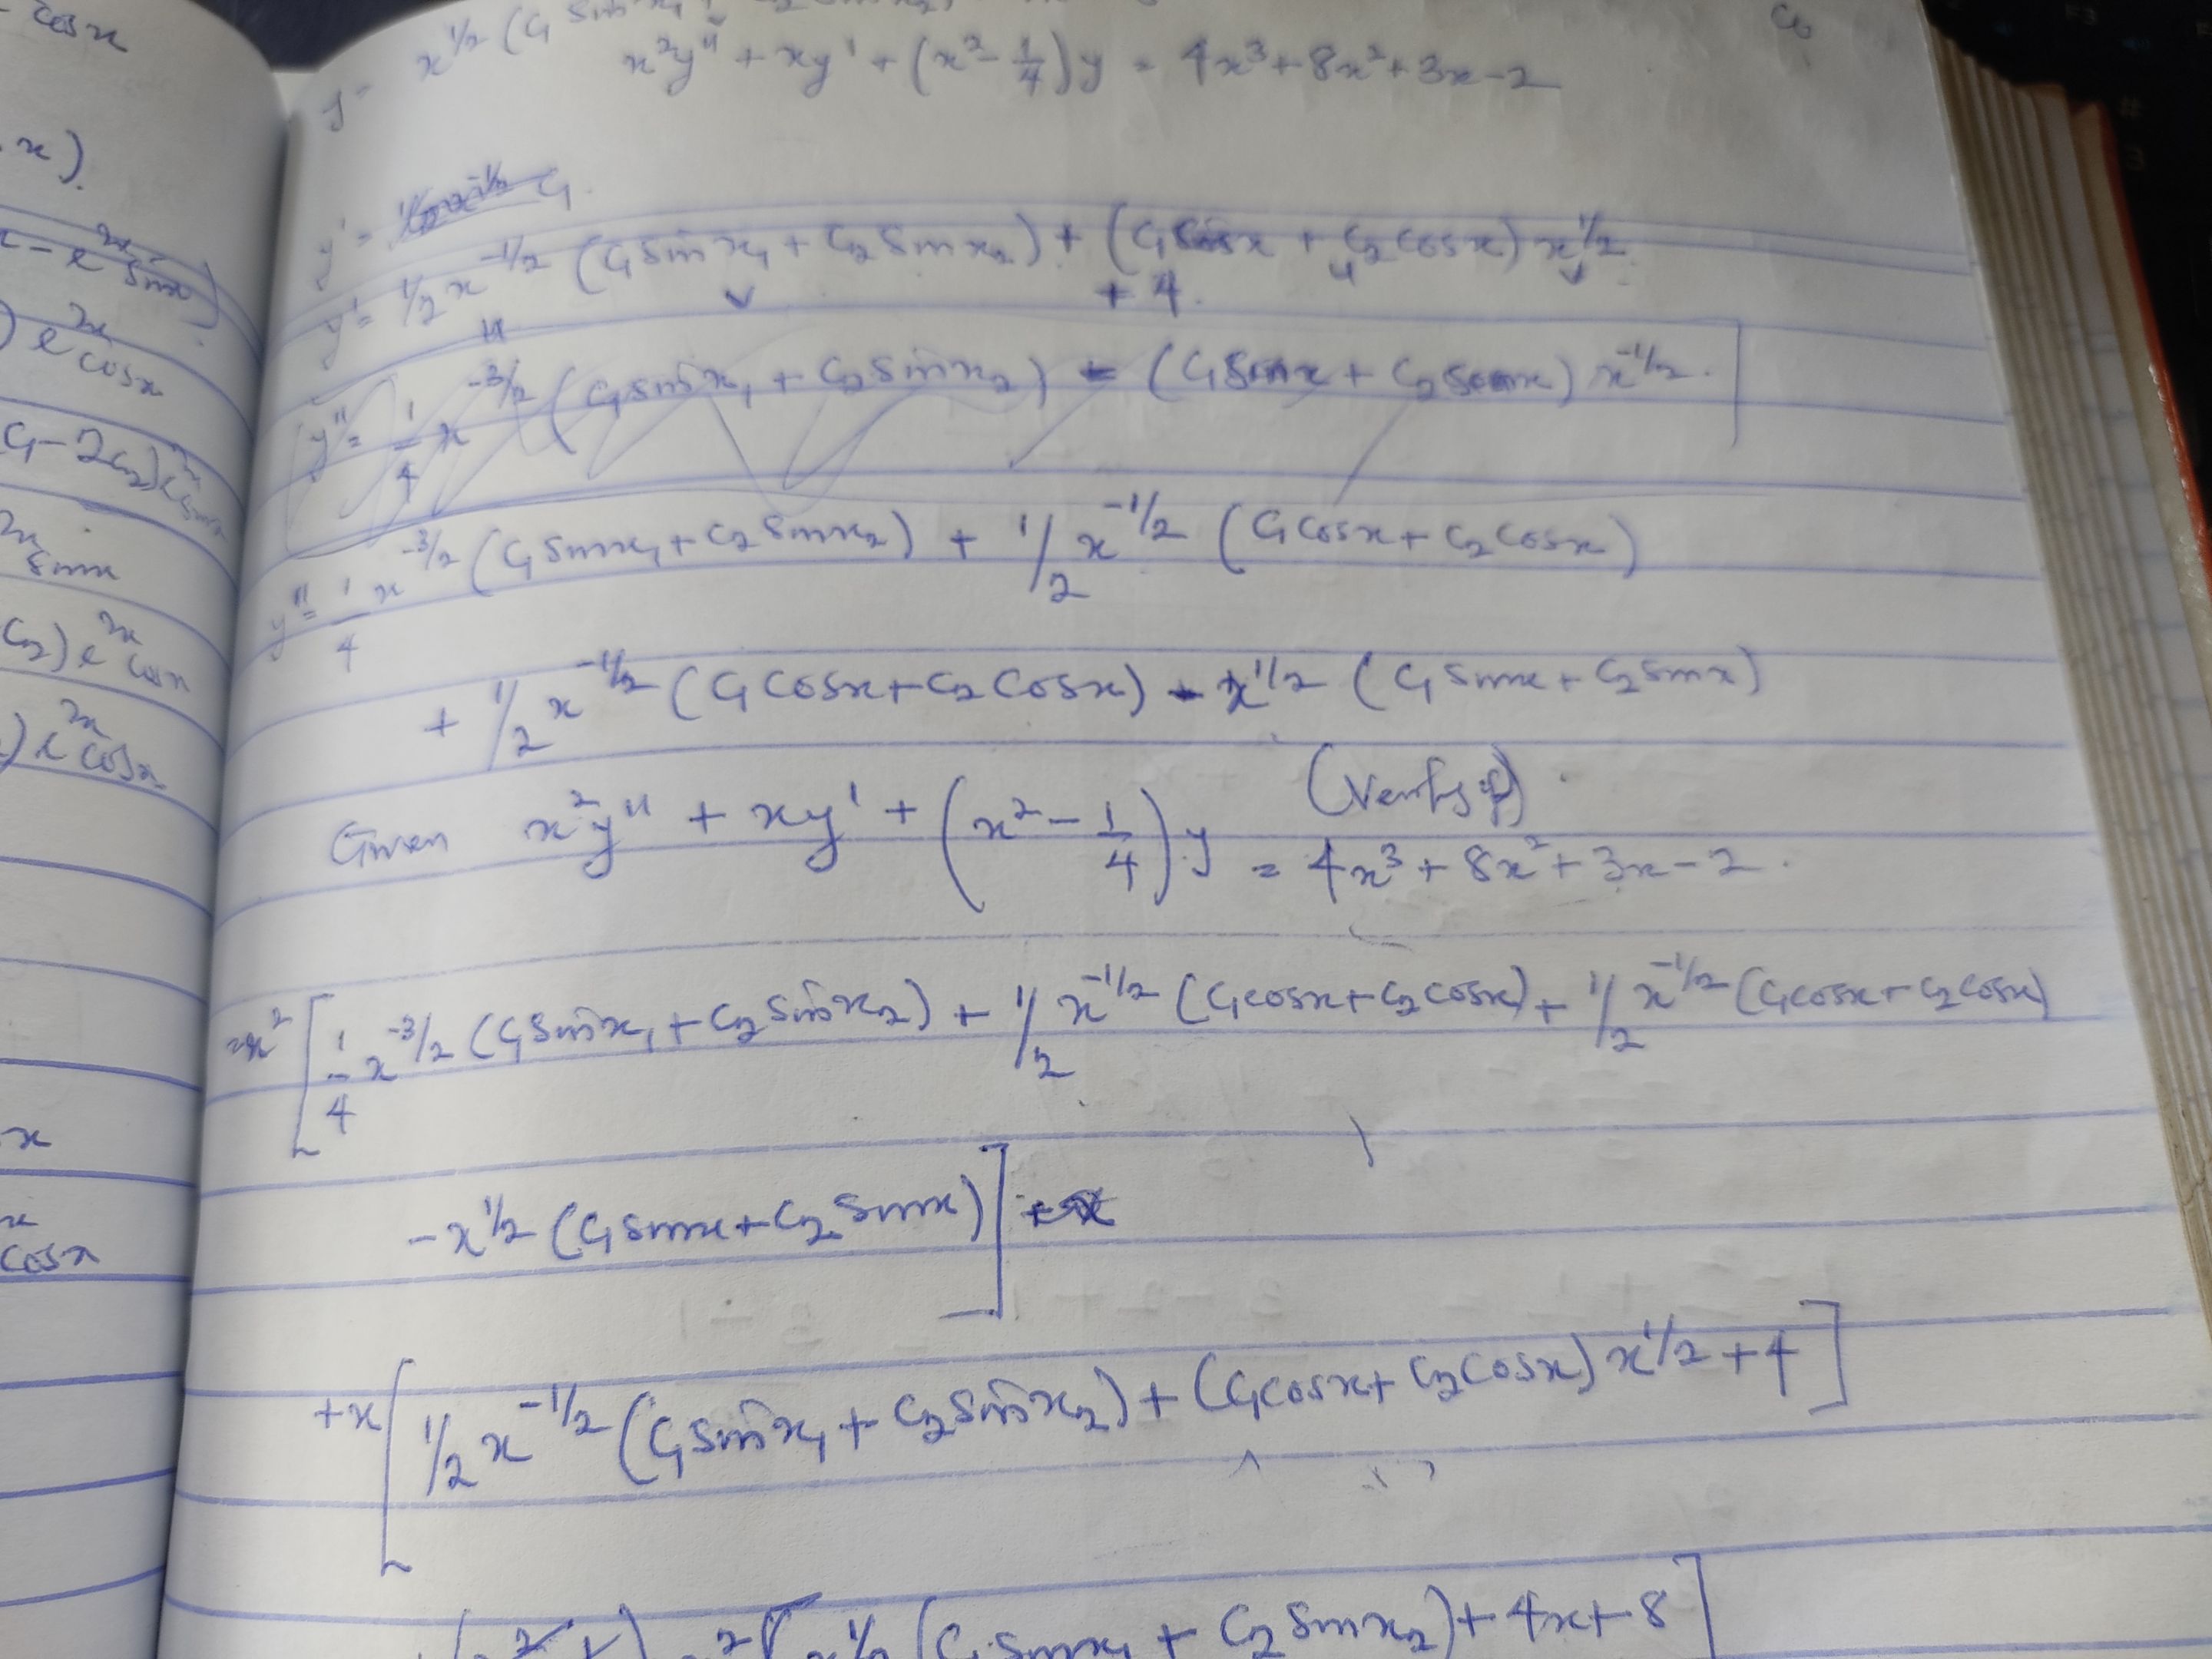 cosx
x).
e^x sinx)
) e^x cosx
C₁-2C₂)e^x sinx
e^x sinx
C₂) e^x cosx
) e^x cosx
x
x
cosx
y = x^1/2 (C₁ sinx₁
x²y" + xy' + (x² - 1/4) y = 4x³ + 8x² + 3x - 2
y' =
y' = 1/2 x^-1/2 (C₁ sinx₁ + C₂ sinx₂) + (C₁ cosx + C₂ cosx) x^1/2
+ 4.
y" = 1/4 x^-3/2 (C₁ sinx₁ + C₂ sinx₂) - (C₁ sinx + C₂ sinx) x^-1/2.
y" = 1/4 x^-3/2 (C₁ sinx₁ + C₂ sinx₂) + 1/2 x^-1/2 (C₁ cosx + C₂ cosx)
+ 1/2 x^-1/2 (C₁ cosx + C₂ cosx) - x^1/2 (C₁ sinx + C₂ sinx)
Given x²y" + xy' + (x² - 1/4) y = 4x³ + 8x² + 3x - 2.
=x² [1/4 x^-3/2 (C₁ sinx₁ + C₂ sinx₂) + 1/2 x^-1/2 (C₁ cosx + C₂ cosx) + 1/2 x^-1/2 (C₁ cosx + C₂ cosx)
- x^1/2 (C₁ sinx + C₂ sinx)]
+x [1/2 x^-1/2 (C₁ sinx₁ + C₂ sinx₂) + (C₁ cosx + C₂ cosx) x^1/2 + 4]
x^1/2 (C₁ sinx₁ + C₂ sinx₂) + 4x + 8]